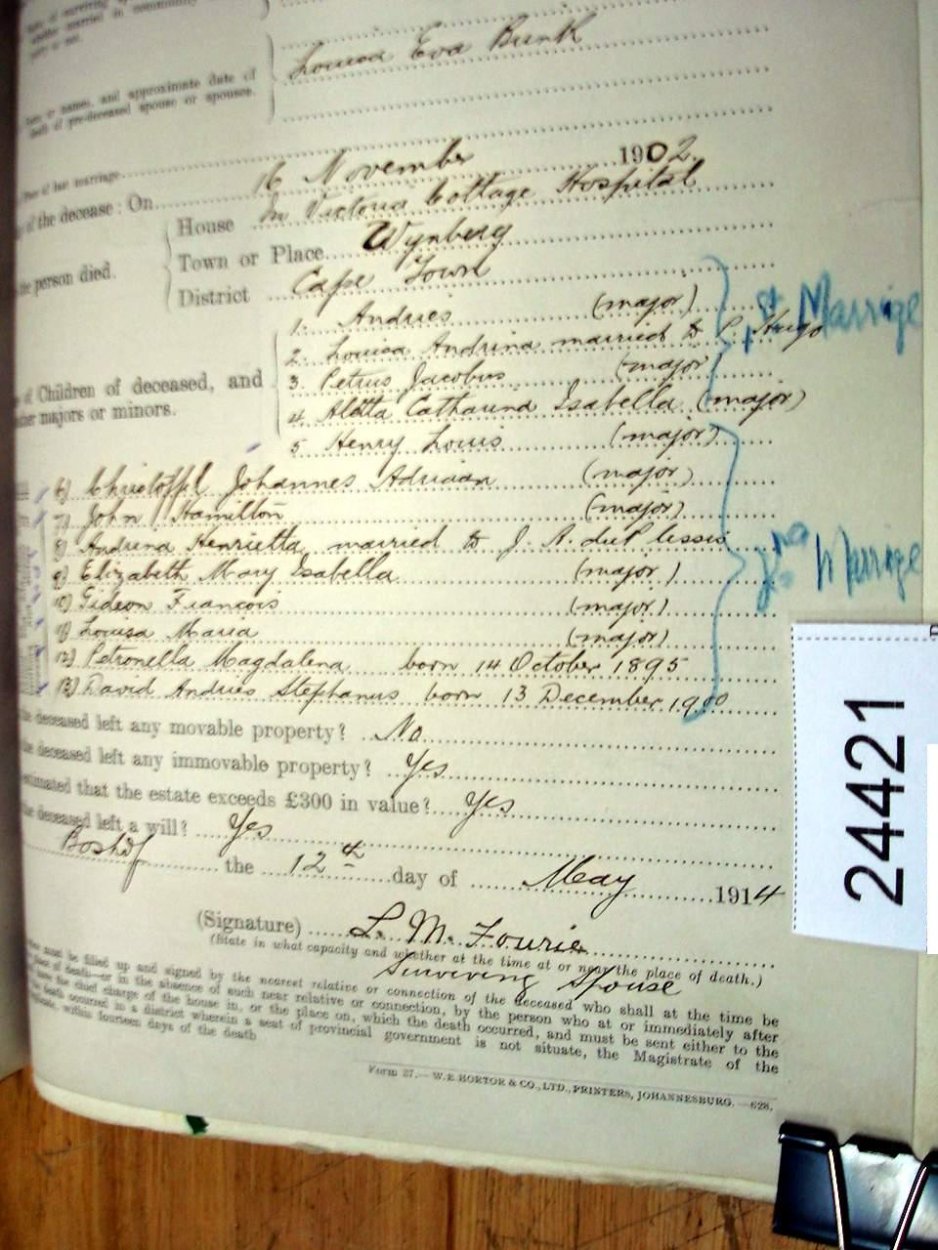 whether married in community
Louisa Eva Bunk
and approximate date of
of pre-deceased spouse or spouses.
of the decease: On 16 November 1902.
House In Victoria Cottage Hospital
person died.
Town or Place Wynberg
District Cape Town
1. Andries (major)
1st Marrige
2. Louisa Andrina married to P. Hugo
3. Petrus Jacobus (major)
of Children of deceased, and
majors or minors.
4. Aletta Catharina Isabella (major)
5 Henry Louis (major)
6) Christoffel Johannes Adriaan (major)
7) John Hamilton (major)
8) Andrina Henrietta married to J. A. du Plessis
9) Elizabeth Mary Isabella (major)
Marrige
10) Gideon Francois (major)
11) Louisa Maria (major)
12) Petronella Magdalena born 14 October 1895
13) David Andries Stephanus born 13 December 1900
deceased left any movable property? No
deceased left any immovable property? Yes
estimated that the estate exceeds £300 in value? Yes
deceased left a will? Yes
Boshof the 12th day of May 1914
(Signature) L. M. Fourie
(State in what capacity and whether at the time at or near the place of death.)
Surviving Spouse
must be filled up and signed by the nearest relative or connection of the deceased who shall at the time be
place of death—or in the absence of such near relative or connection, by the person who at or immediately after
the chief charge of the house in, or the place on, which the death occurred, and must be sent either to the
death occurred in a district wherein a seat of provincial government is not situate, the Magistrate of the
within fourteen days of the death
Form 27.—W. E. HORTOR & CO., LTD., PRINTERS, JOHANNESBURG.—628.
24421